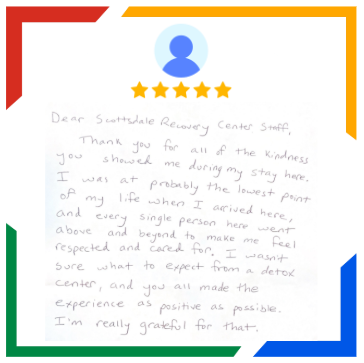 Dear Scottsdale Recovery Center Staff,
Thank you for all of the kindness
you showed me during my stay here.
I was at probably the lowest point
of my life when I arrived here,
and every single person here went
above and beyond to make me feel
respected and cared for. I wasn't
sure what to expect from a detox
center, and you all made the
experience as positive as possible.
I'm really grateful for that.